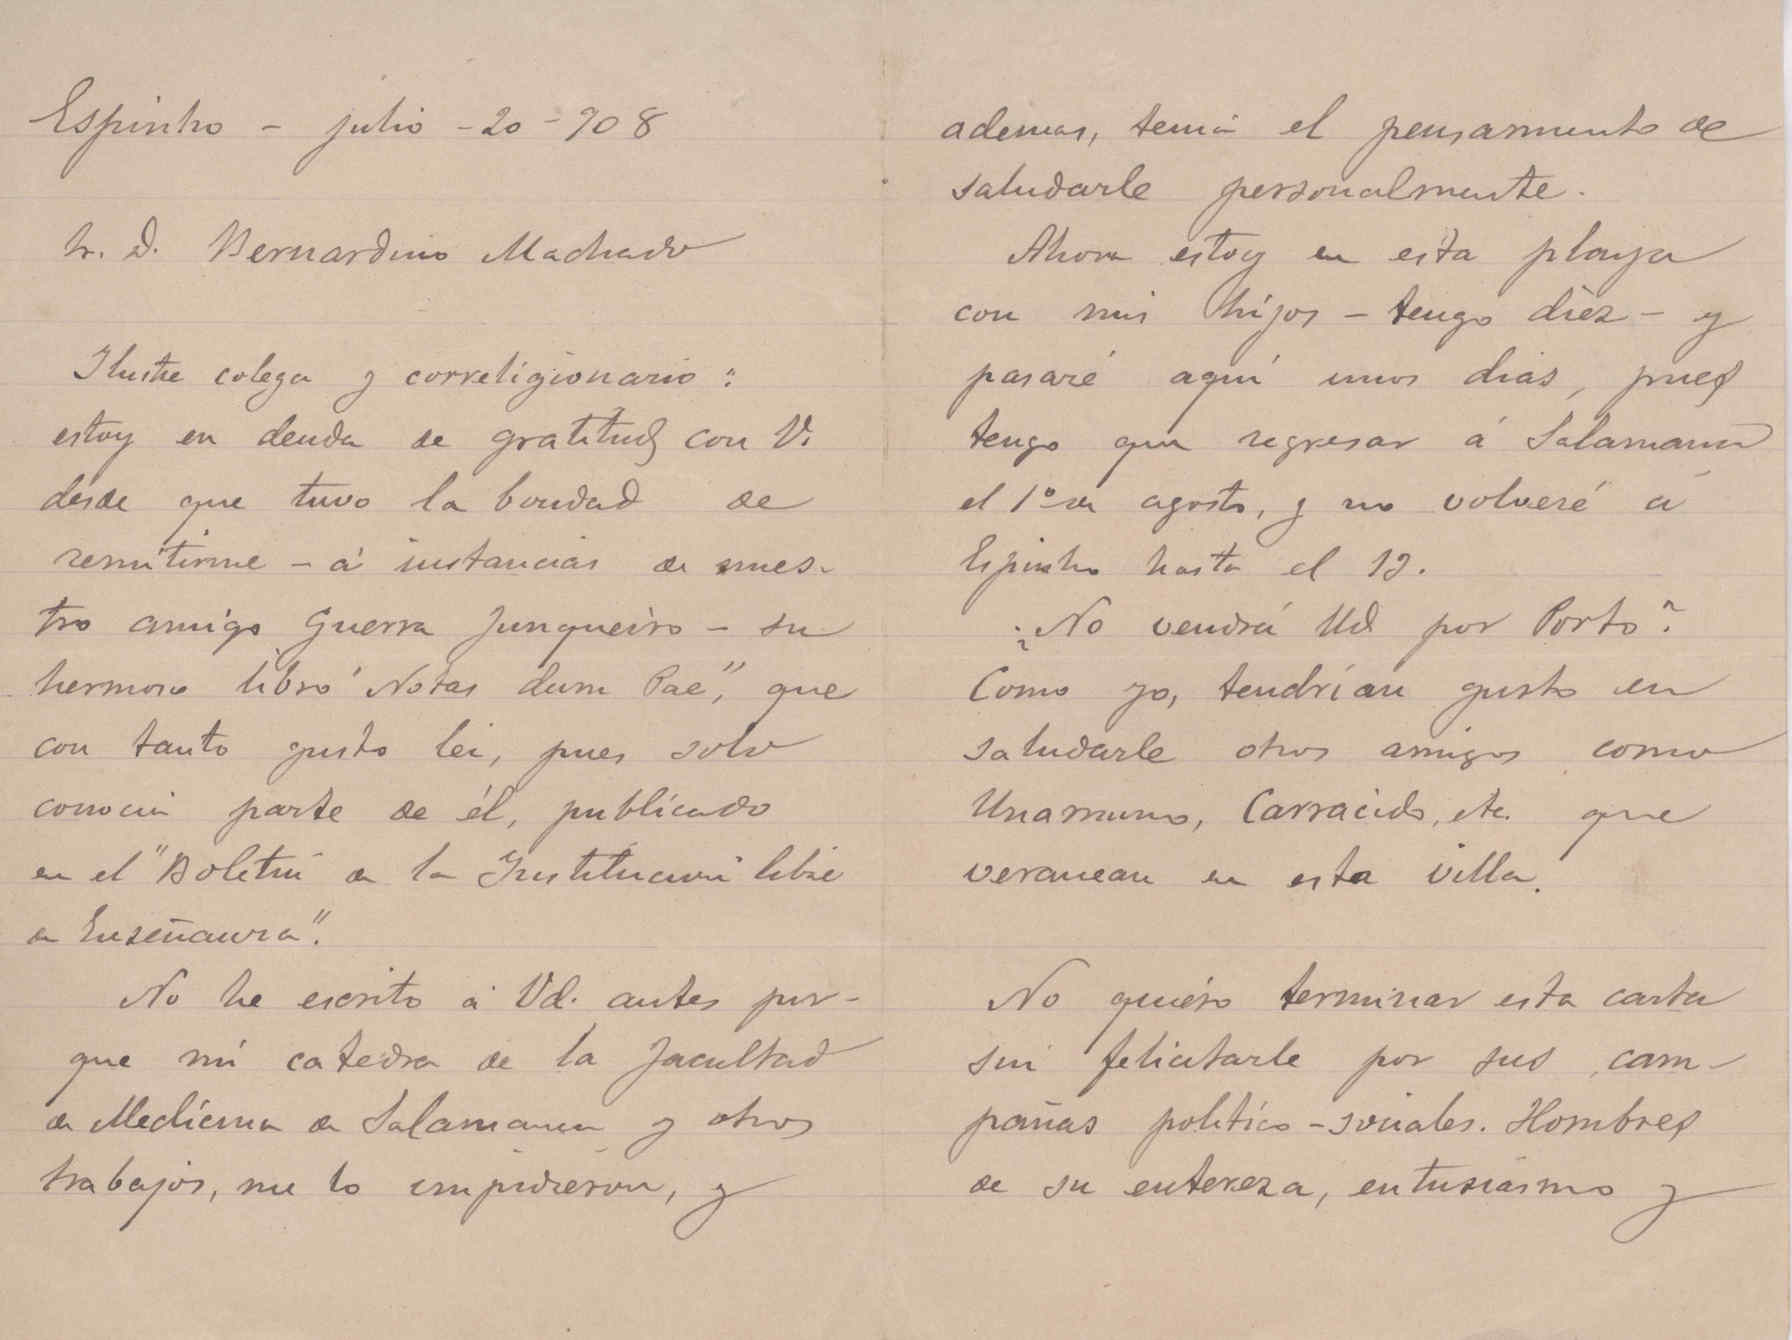 Espinho - julio - 20 - 908
Sr. D. Bernardino Machado
Ilustre colega y correligionario:
estoy en deuda de gratitud con V.
desde que tuvo la bondad de
remitirme - á instancias de nues-
tro amigo Guerra Junqueiro - su
hermoso libro "Notas dum Pae", que
con tanto gusto lei, pues solo
conocia parte de él, publicado
en el "Boletin de la Institucion libre
de Enseñanza".
No he escrito á Vd. antes por-
que mi catedra de la Facultad
de Medicina de Salamanca y otros
trabajos, me lo impidieron, y
ademas, tenia el pensamiento de
saludarle personalmente.
Ahora estoy en esta playa
con mis hijos - tengo diez - y
pasaré aquí unos dias, pues
tengo que regresar á Salamanca
el 1º de agosto, y no volveré á
Espinho hasta el 12.
¿No vendrá Ud por Porto?
Como yo, tendrían gusto en
saludarle otros amigos como
Unamuno, Carracido, etc. que
veranean en esta villa.
No quiero terminar esta carta
sin felicitarle por sus cam-
pañas politico-sociales. Hombres
de su entereza, entusiasmo y